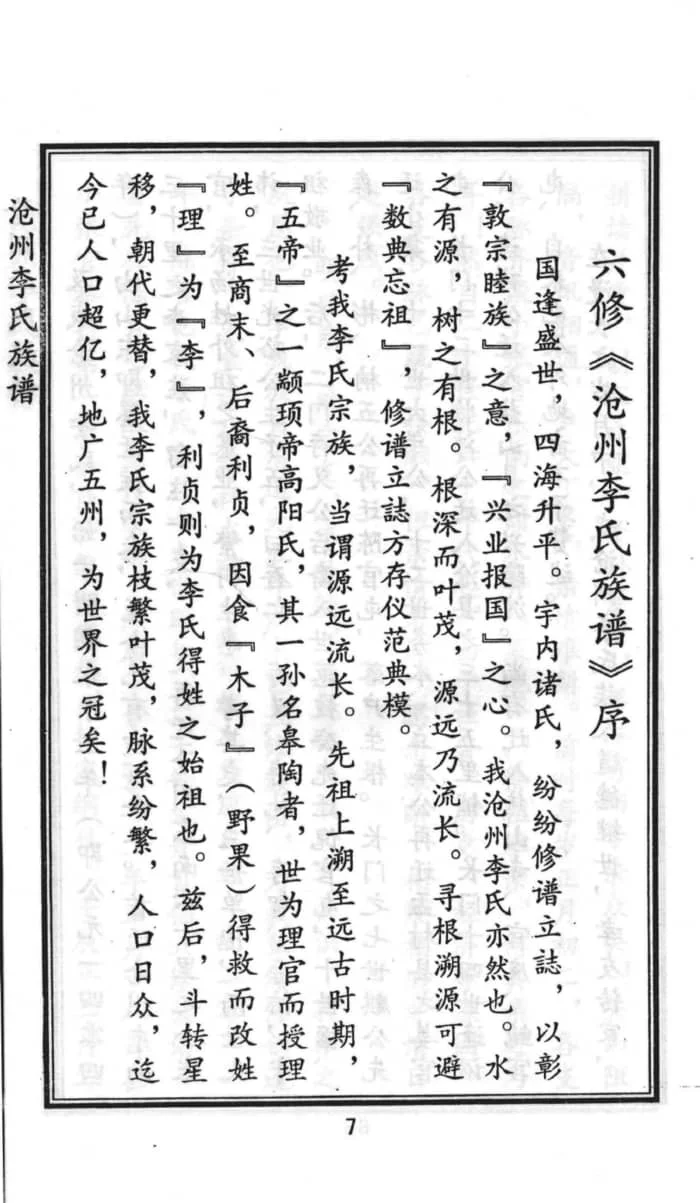 六修《沧州李氏族谱》序
国逢盛世，四海升平。宇内诸氏，纷纷修谱立誌，以彰
『敦宗睦族』之意，『兴业报国』之心。我沧州李氏亦然也。水
之有源。树之有根。根深而叶茂，源远乃流长。寻根溯源可避
『数典忘祖』，修谱立誌方存仪范典模。
考我李氏宗族，当谓源远流长。先祖上溯至远古时期，
『五帝』之一颛顼帝高阳氏，其一孙名皋陶者，世为理官而授理
姓。至商末、后裔利贞，因食『木子』（野果）得救而改姓
『理』为『李』，利贞则为李氏得姓之始祖也。兹后，斗转星
移，朝代更替，我李氏宗族枝繁叶茂，脉系纷繁，人口日众，迄
今已人口超亿，地广五州，为世界之冠矣！
沧州李氏族谱
7